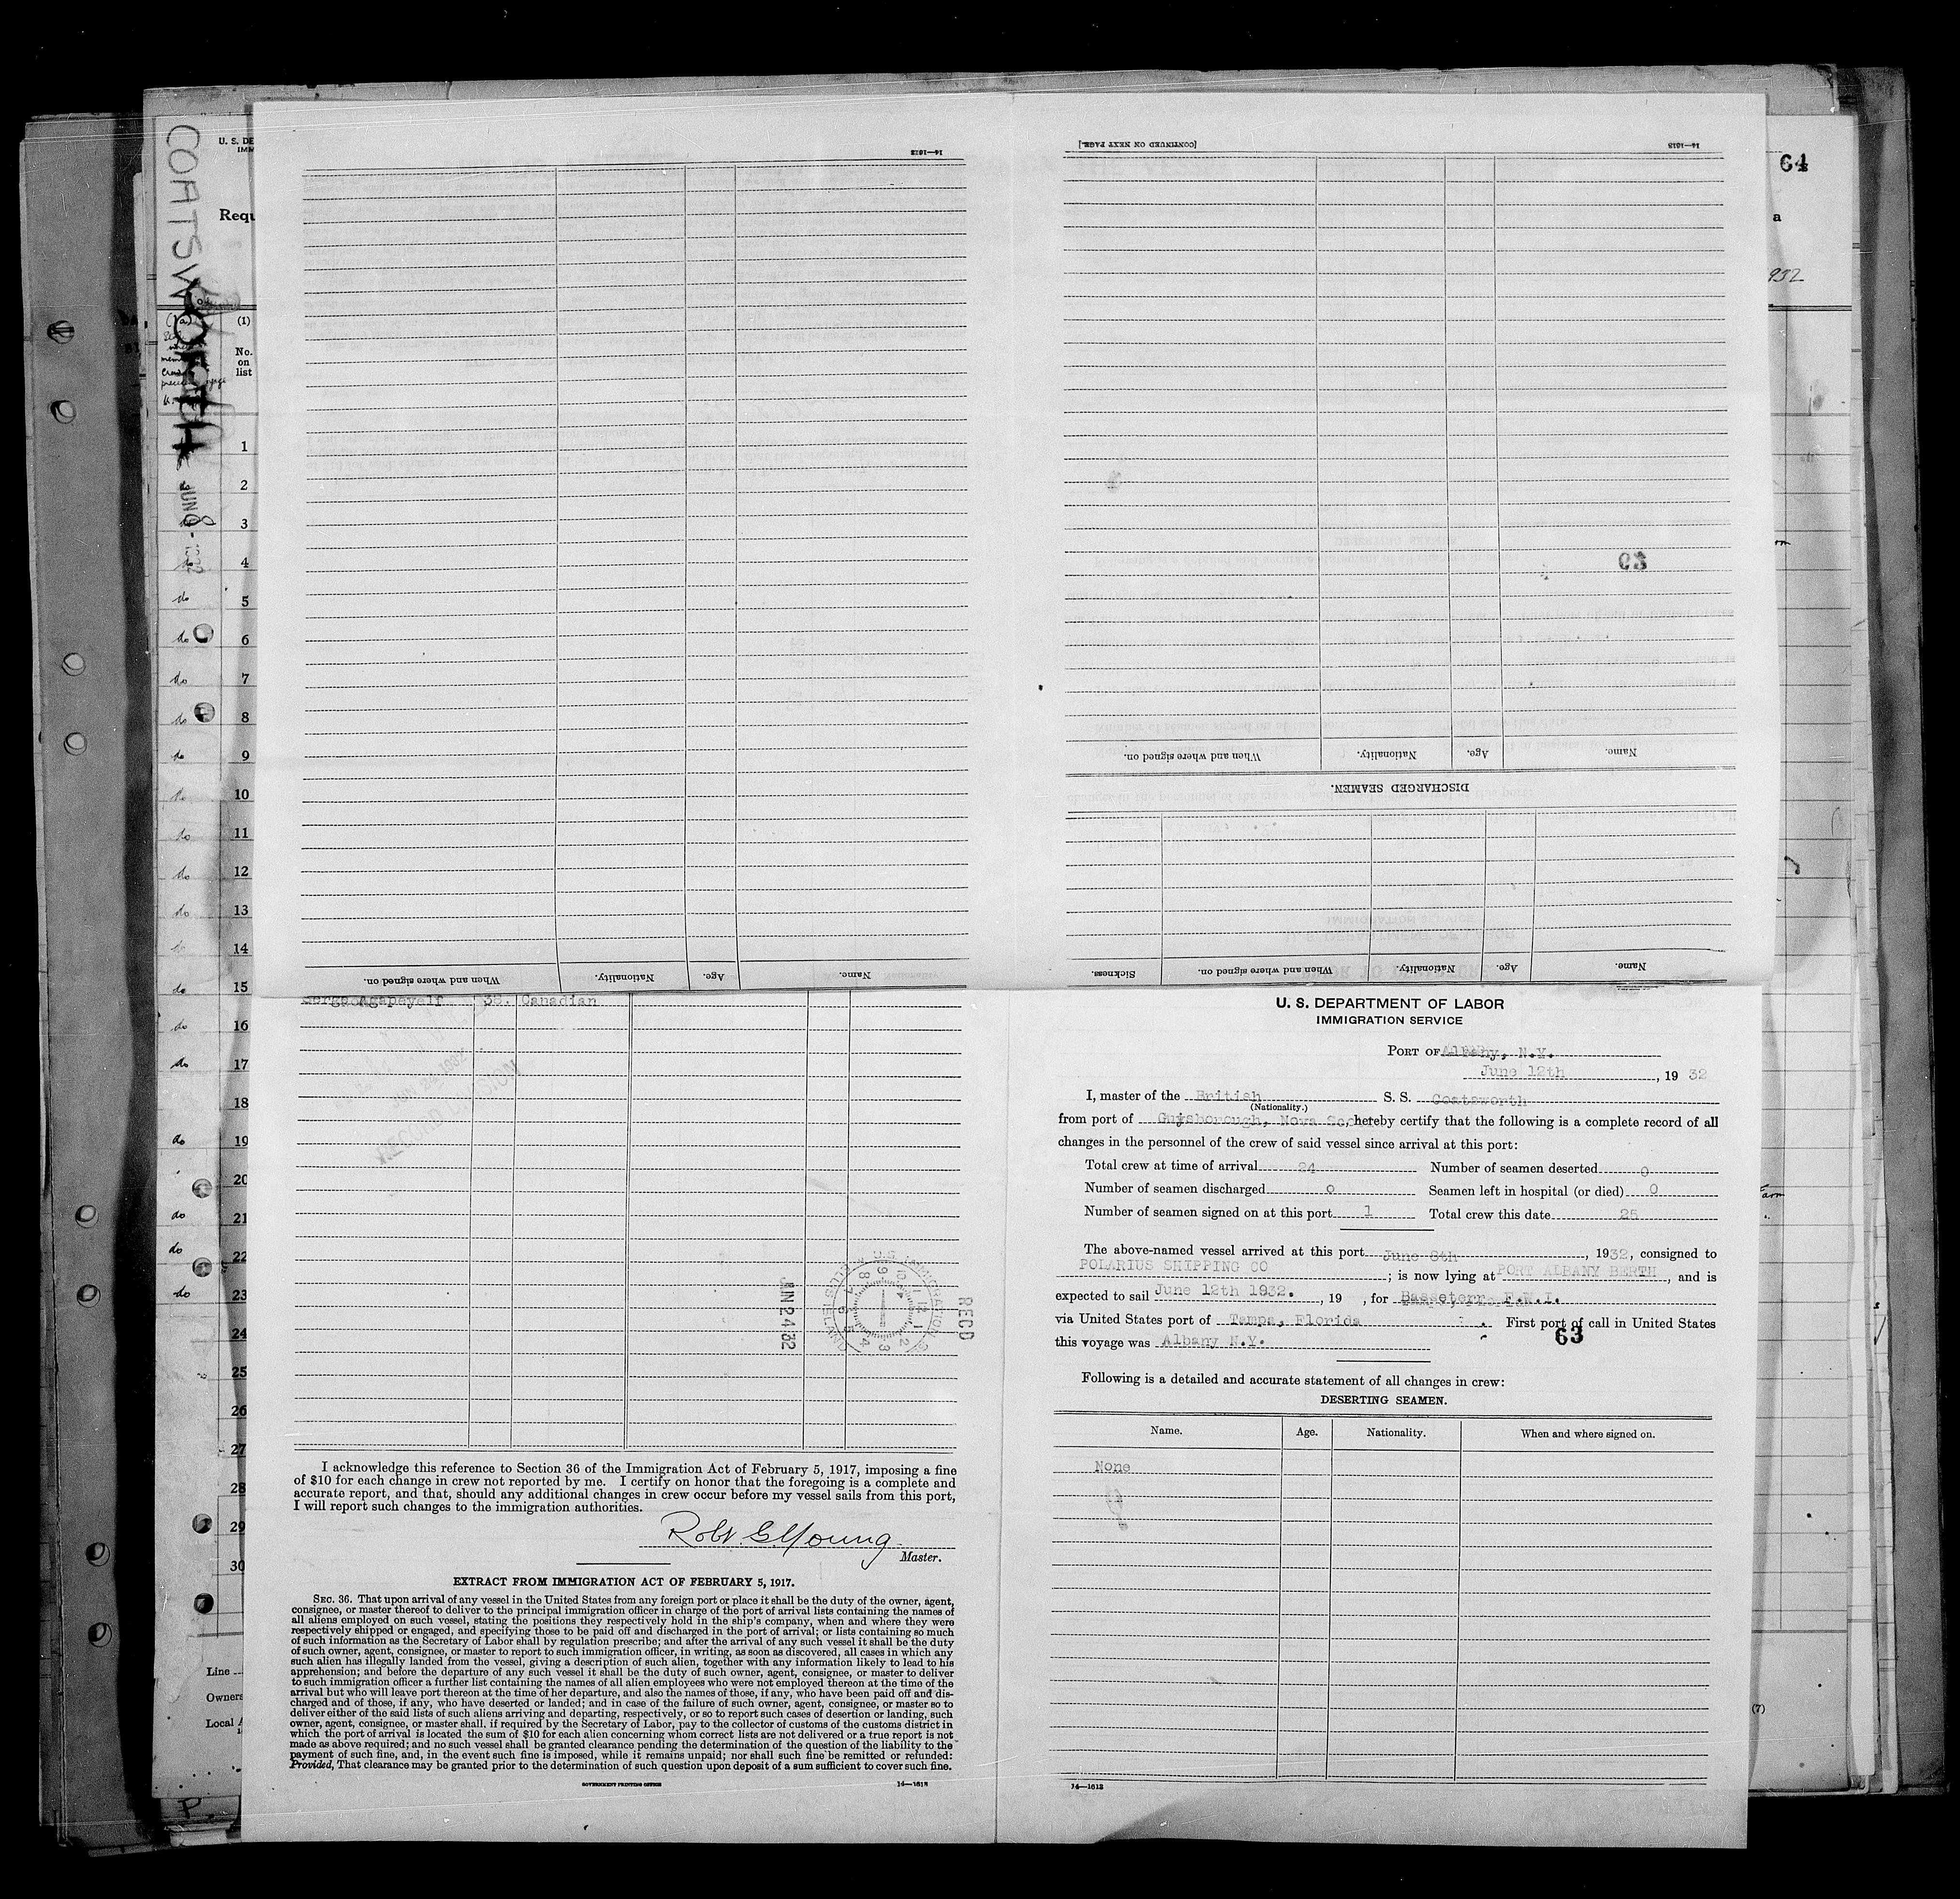 COATSWORTH
JUN 8 - 1932
U. S. DE
IMM
Requ
(1)
No.
on
list
1
2
3
4
do 5
do 6
do 7
do 8
do 9
do 10
do 11
do 12
do 13
do 14
do 15
do 16
do 17
18
do 19
20
do 21
do 22
do 23
24
25
26
27
28
29
30
Line
Owners
Local A
P.
64
a
932
(7)
14—1613
When and where signed on.
Nationality.
Age.
Name.
[CONTINUED ON NEXT PAGE.]
14—1613
63
When and where signed on.
Nationality.
Age.
Name.
DISCHARGED SEAMEN.
Sickness.
When and where signed on.
Nationality.
Age.
Name.
Canadian
RECORD DIVISION
REC'D
U.S. IMMIGRATION
ELLIS ISLAND
JUN 24 32
I acknowledge this reference to Section 36 of the Immigration Act of February 5, 1917, imposing a fine
of $10 for each change in crew not reported by me. I certify on honor that the foregoing is a complete and
accurate report, and that, should any additional changes in crew occur before my vessel sails from this port,
I will report such changes to the immigration authorities.
Robt. G Young
Master.
EXTRACT FROM IMMIGRATION ACT OF FEBRUARY 5, 1917.
SEC. 36. That upon arrival of any vessel in the United States from any foreign port or place it shall be the duty of the owner, agent,
consignee, or master thereof to deliver to the principal immigration officer in charge of the port of arrival lists containing the names of
all aliens employed on such vessel, stating the positions they respectively hold in the ship's company, when and where they were
respectively shipped or engaged, and specifying those to be paid off and discharged in the port of arrival; or lists containing so much
of such information as the Secretary of Labor shall by regulation prescribe; and after the arrival of any such vessel it shall be the duty
of such owner, agent, consignee, or master to report to such immigration officer, in writing, as soon as discovered, all cases in which any
such alien has illegally landed from the vessel, giving a description of such alien, together with any information likely to lead to his
apprehension; and before the departure of any such vessel it shall be the duty of such owner, agent, consignee, or master to deliver
to such immigration officer a further list containing the names of all alien employees who were not employed thereon at the time of the
arrival but who will leave port thereon at the time of her departure, and also the names of those, if any, who have been paid off and dis-
charged and of those, if any, who have deserted or landed; and in case of the failure of such owner, agent, consignee, or master so to
deliver either of the said lists of such aliens arriving and departing, respectively, or so to report such cases of desertion or landing, such
owner, agent, consignee, or master shall, if required by the Secretary of Labor, pay to the collector of customs of the customs district in
which the port of arrival is located the sum of $10 for each alien concerning whom correct lists are not delivered or a true report is not
made as above required; and no such vessel shall be granted clearance pending the determination of the question of the liability to the
payment of such fine, and, in the event such fine is imposed, while it remains unpaid; nor shall such fine be remitted or refunded:
Provided, That clearance may be granted prior to the determination of such question upon deposit of a sum sufficient to cover such fine.
GOVERNMENT PRINTING OFFICE 14—1613
U. S. DEPARTMENT OF LABOR
IMMIGRATION SERVICE
PORT OF Albany, N.Y.
June 12th, 1932
I, master of the British S. S. Coatsworth
(Nationality.)
from port of Guysborough, Nova Scotia, hereby certify that the following is a complete record of all
changes in the personnel of the crew of said vessel since arrival at this port:
Total crew at time of arrival 24 Number of seamen deserted 0
Number of seamen discharged 0 Seamen left in hospital (or died) 0
Number of seamen signed on at this port 1 Total crew this date 25
The above-named vessel arrived at this port June 8th, 1932, consigned to
POLARIUS SHIPPING CO; is now lying at PORT ALBANY BERTH, and is
expected to sail June 12th 1932., 19 , for Basseterr F.W.I.
via United States port of Tampa, Florida. First port of call in United States
this voyage was Albany N.Y.
63
Following is a detailed and accurate statement of all changes in crew:
DESERTING SEAMEN.
Name. Age. Nationality. When and where signed on.
None
14—1613